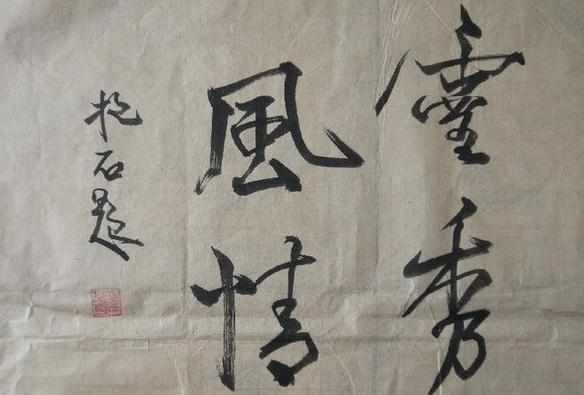 靈秀
風情
抱石題